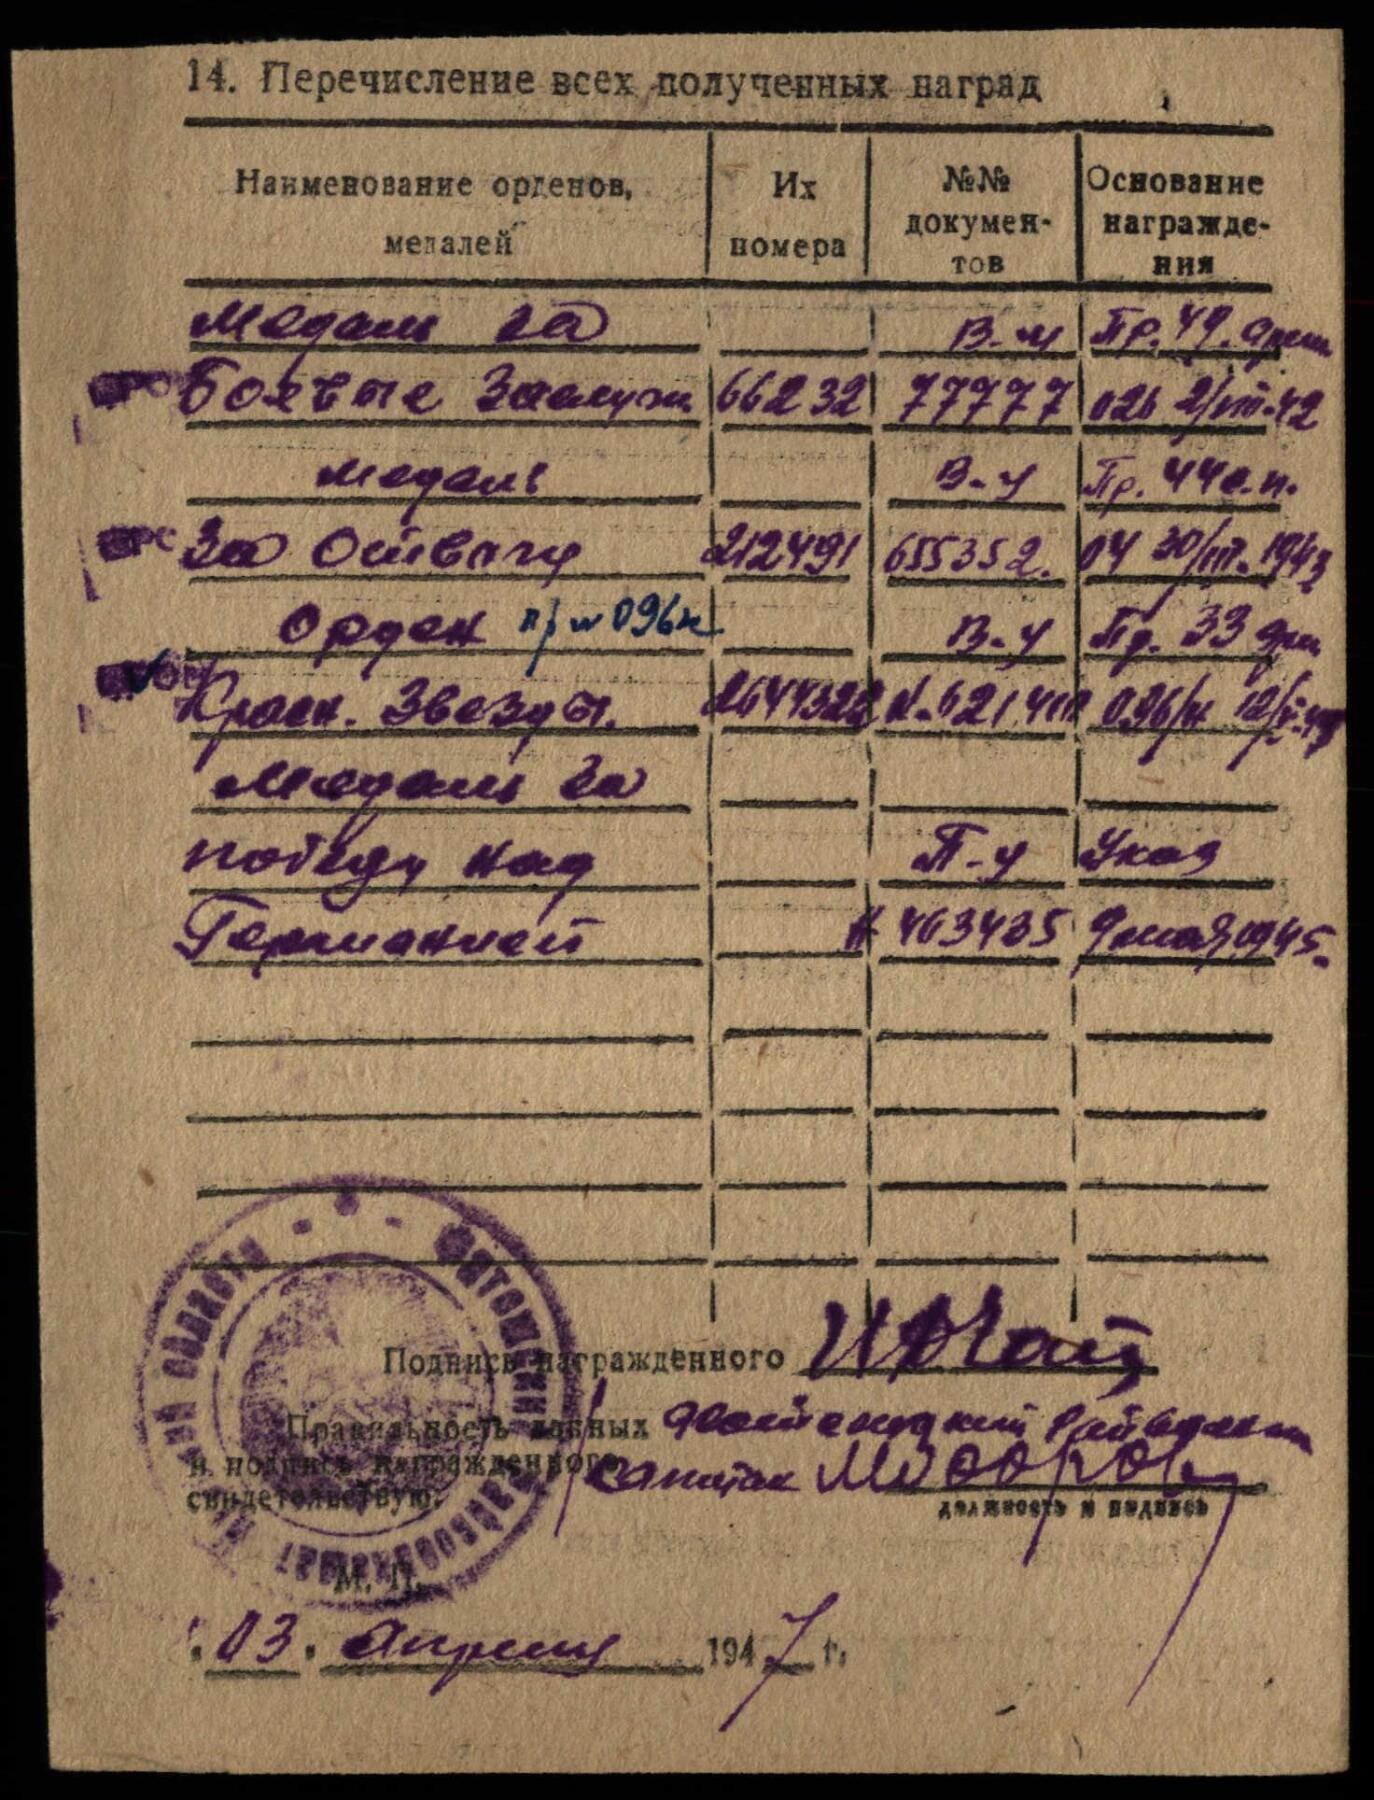 14. Перечисление всех полученных наград
Наименование орденов, медалей
Их номера
№№ документов
Основание награждения
Медаль За В-м Пр. 49. арм
Боевые Заслуги 66232 77777 026 2/III-42
медаль В-у Пр. 44 с.п.
За Отвагу 212491 655352. 04 30/III. 1943
Орден пр № 096н В-у Пр. 33 арм
Красн. Звезды. 096/н
Медаль За
победу над П-у Указ
Германией 9 мая 1945.
Подпись награжденного
Правильность данных
и подпись награжденного
свидетельствую. капитан
должность и подпись
М. П.
"03" Апреля 1947 г.